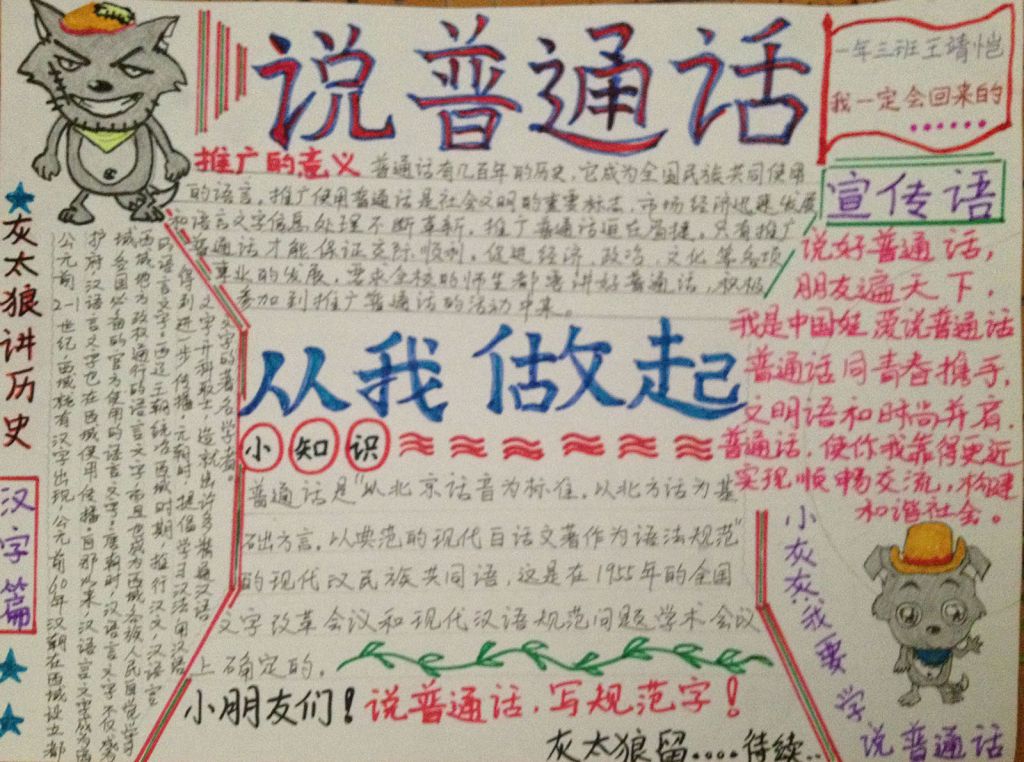 说普通话
一年三班王靖恺
我一定会回来的
......
推广的意义 普通话有几百年的历史,它成为全国民族共同使用
的语言。推广使用普通话是社会文明的重要标志,市场经济迅速发展
和语言文字信息处理不断革新,推广普通话迫在眉捷,只有推广
普通话才能保证交际顺利,促进经济、政治、文化等各项
事业的发展,要求全校的师生都要讲好普通话,积极
参加到推广普通话的活动中来。
宣传语
说好普通话,
朋友遍天下,
我是中国娃 爱说普通话
普通话同青春携手,
文明语和时尚并肩,
普通话,使你我靠得更近
实现顺畅交流,构建
和谐社会。
灰太狼讲历史
汉字篇
公元前2-1世纪,西域就有汉字出现,公元前60年汉朝在西域设立都
护府,汉语言文字也在西域使用传播,自那以来,汉语言文字成为西
域全国必备的官方使用的语言文字,唐朝时,汉语言文字不仅成为
西域地方政权通行的语言文字,而且也成为西域各族人民自觉学习
的语言文字,西辽王朝统治西域时期,推行汉文,汉语言
得到进一步传播,元朝时,提倡学习汉法,用汉语
文字开科取士,造就出许多精通汉语
文字的著名学者。
从我做起
小知识
普通话是"以北京话音为标准,以北方话为基
础方言,以典范的现代白话文著作为语法规范"
的现代汉民族共同语,这是在1955年的全国
文字改革会议和现代汉语规范问题学术会议
上确定的。
小朋友们!说普通话,写规范字!
灰太狼留....待续..
小灰灰我要学
说普通话